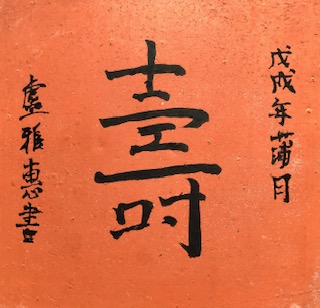 戊戌年蒲月
壽
盧雅惠書